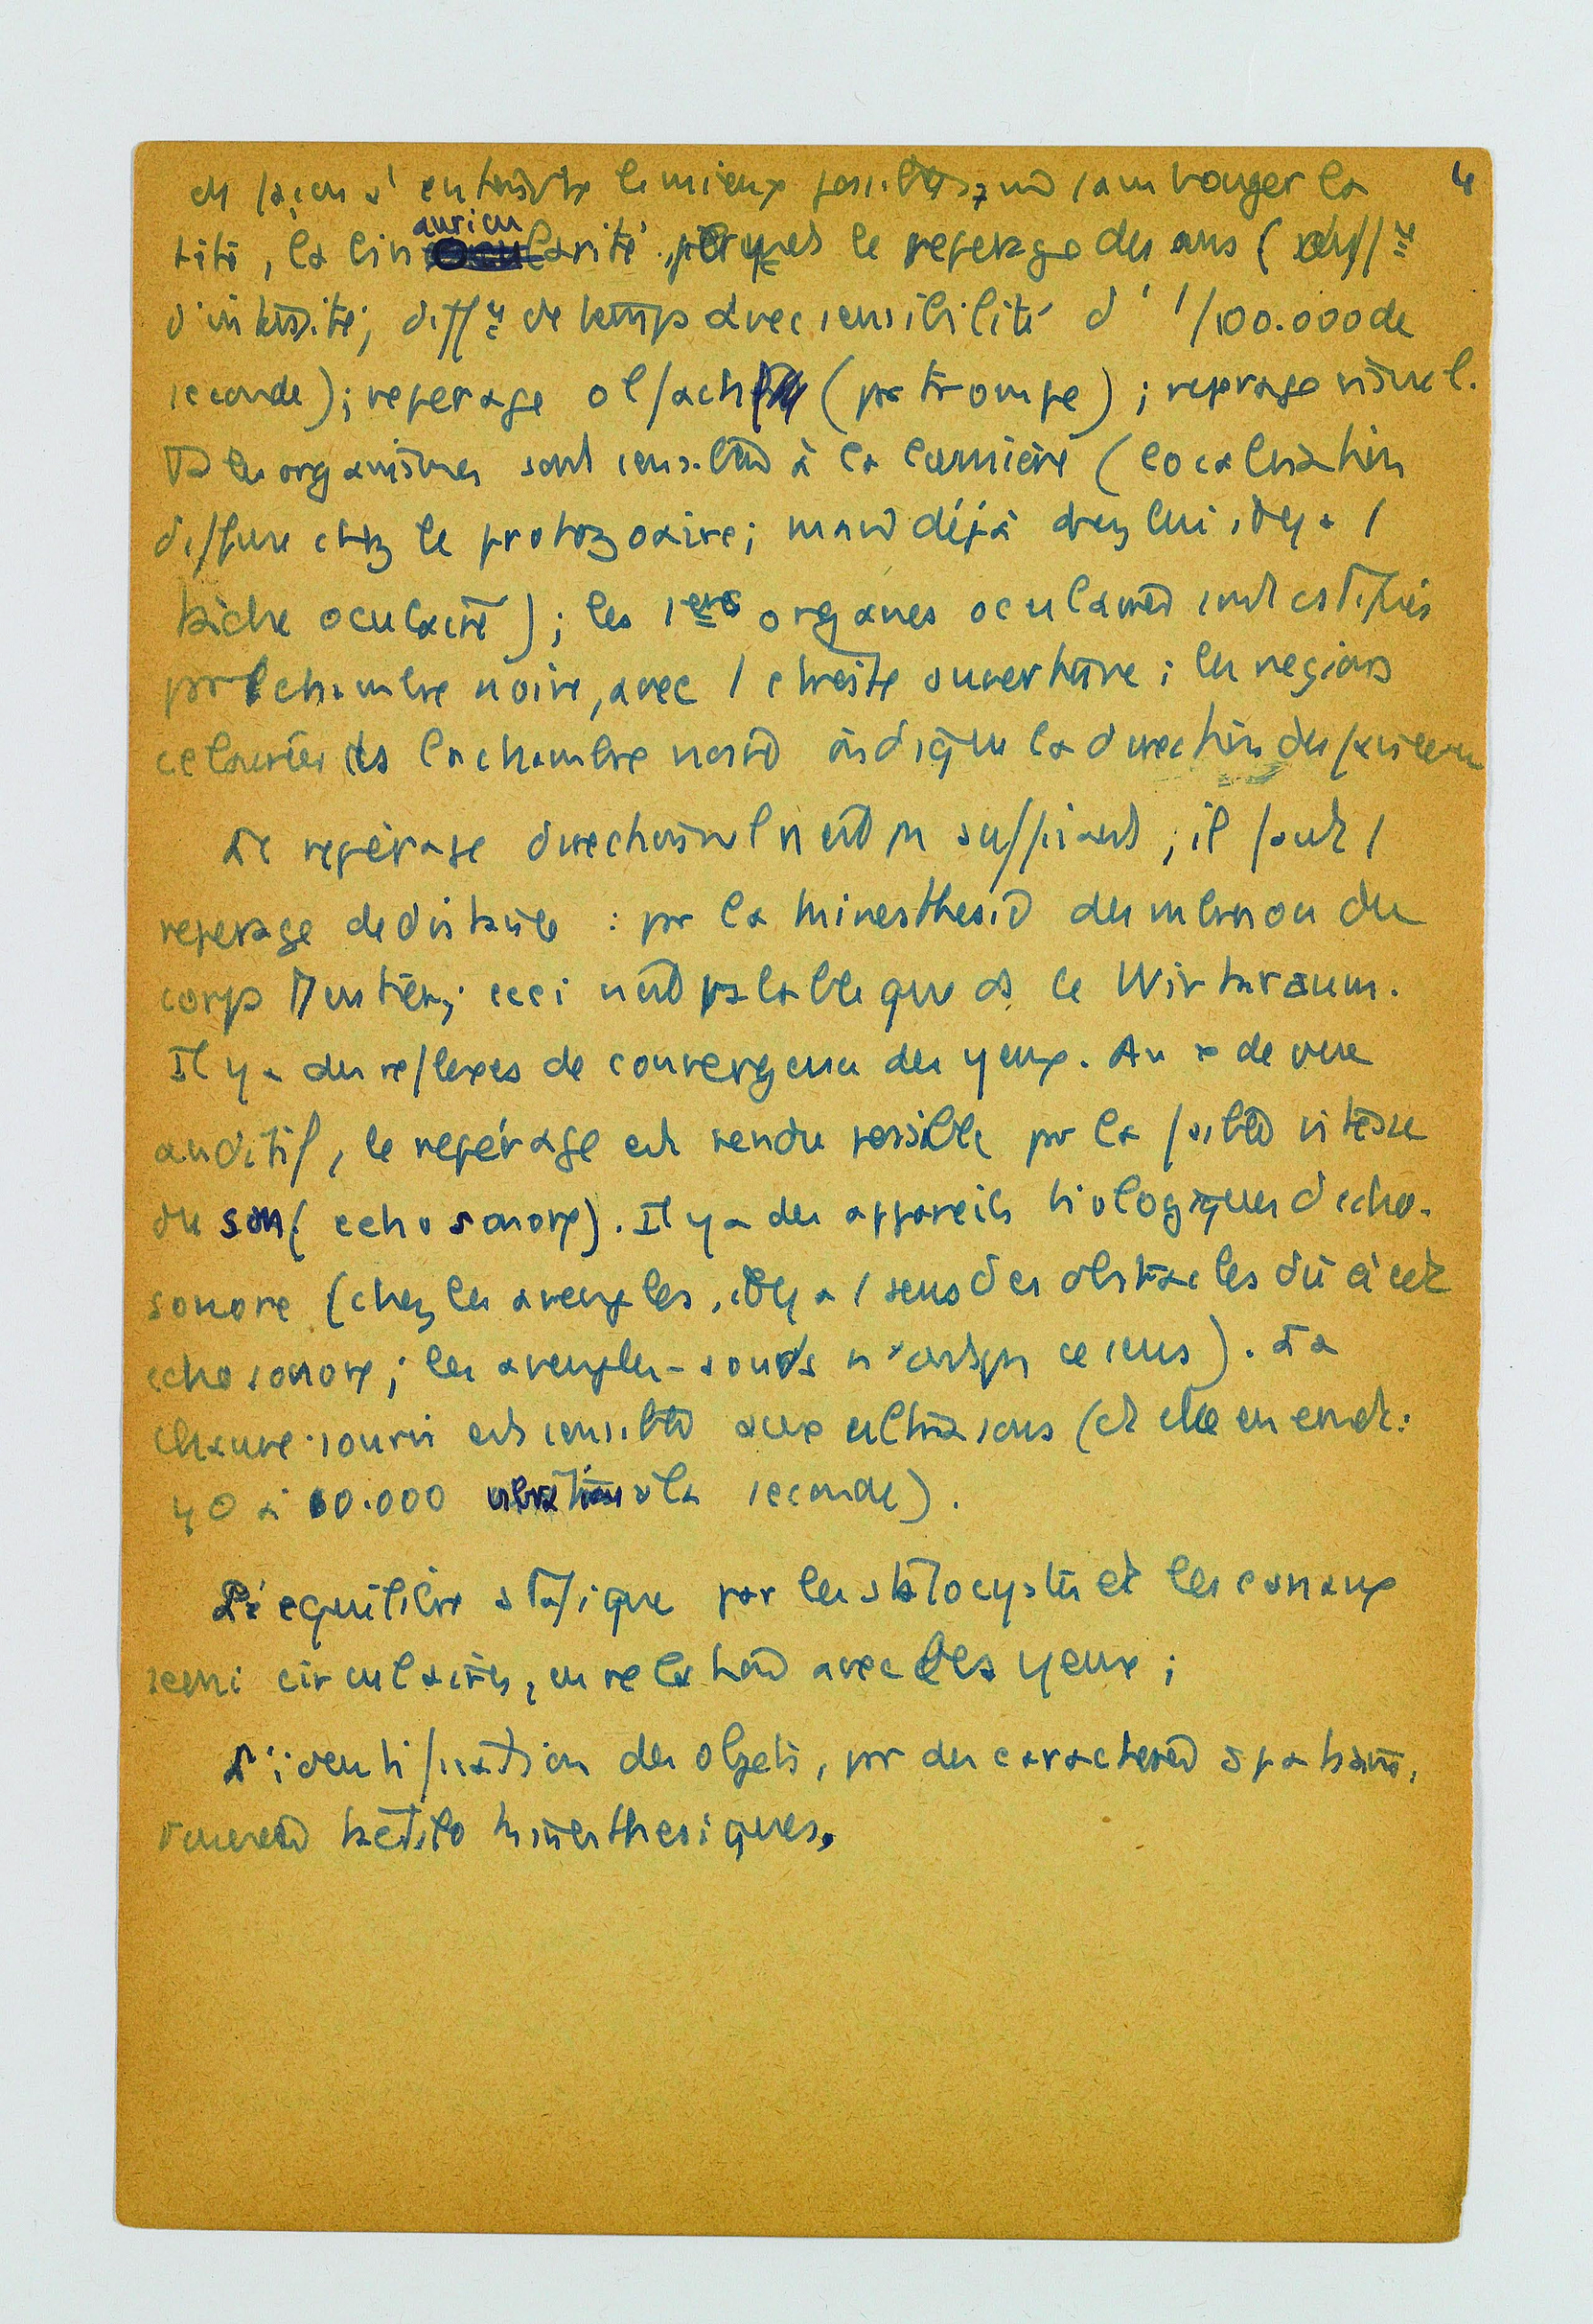 4
en façon d'entendre le mieux possible, mm sans bouger la
tête, la bin auricularité permet le reperage des sons (diffce
d'intensité; diffce de temps avec sensibilité d'1/100.000 de
seconde); reperage olfactif (par trompe); reperage visuel.
Ts les organismes sont sensibles à la lumière (localisation
diffuse chez le protozoaire; mais déjà chez lui, il y a 1
tâche oculaire); les 1ers organes oculaires sont constitués
par 1 chambre noire, avec 1 étroite ouverture; les régions
éclairées ds la chambre noire indique la direction du faisceau
Le repérage directionnel n'est pas suffisant; il faut 1
reperage de distance : par la kinesthesie des mbres ou du
corps entier; ceci n'est valable que ds le Wirkraum.
Il y a des reflexes de convergence des yeux. Au x de vue
auditif, le repérage est rendu possible par la faible vitesse
du son (echo sonore). Il y a des appareils biologiques d'echo-
sonore (chez les aveugles, il y a 1 sens des obstacles dû à cet
echo sonore; les aveugles-sourds n'ont pas ce sens). La
chauve-souris est sensible aux ultra sons (et elle en emet:
40 à 60.000 vibrations à la seconde).
L'équilibre statique par les statocystes et les canaux
semi circulaires, en relation avec les yeux;
L'identification des objets, par des caracteres spatiaux,
tactilo kinesthesiques.